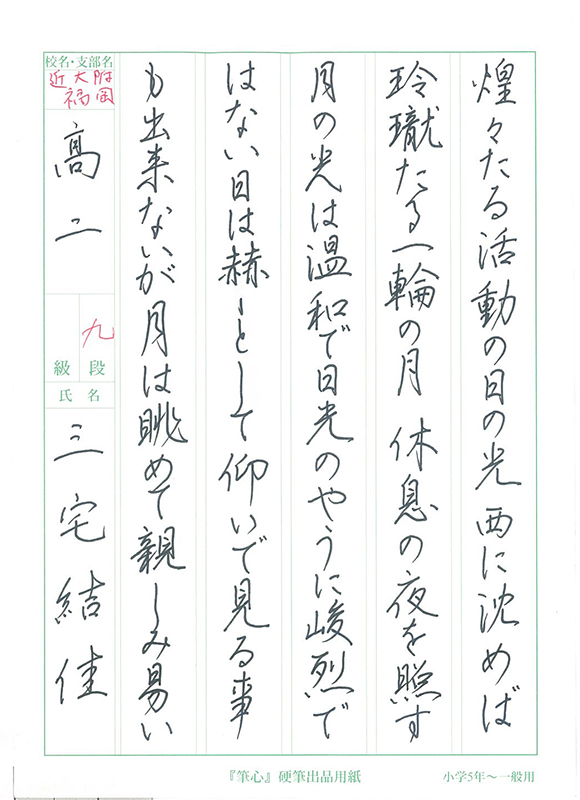 煌々たる活動の日の光 西に沈めば
玲瓏たる一輪の月 休息の夜を照す
月の光は温和で日光のやうに峻烈で
はない日は赫々として仰いで見る事
も出来ないが月は眺めて親しみ易い
校名・支部名
近大附
福岡
高二
九
級 段
氏 名
三宅結佳
『筆心』硬筆出品用紙
小学5年〜一般用